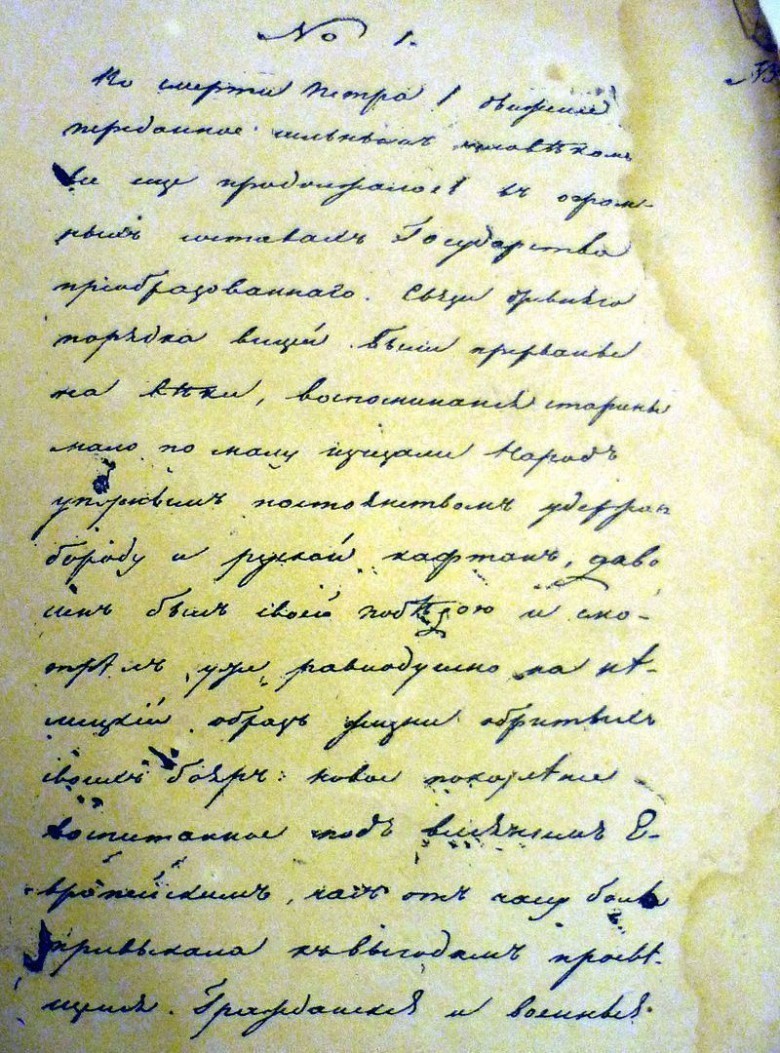 No 1.
По смерти Петра I движенiе
переданное сильнымъ человѣкомъ
все еще продолжалось въ огром-
ныхъ составахъ Государства
преобразованнаго. Связи древняго
порядка вещей были прерваны
на вѣки, воспоминанiя старины
мало по малу изчезали Народъ
упрямымъ постоянствомъ удержавъ
бороду и руской кафтанъ, дово
ленъ былъ своей побѣдою и смо-
трѣлъ уже равнодушно на нѣ-
мецкiй образъ жизни обритыхъ
своихъ бояръ: новое поколѣнiе
воспитанное подъ влiянiемъ Е-
вропейскимъ, часъ отъ часу болѣе
привыкало къ выгодамъ просвѣ-
щенiя. Гражданскiя и военныя